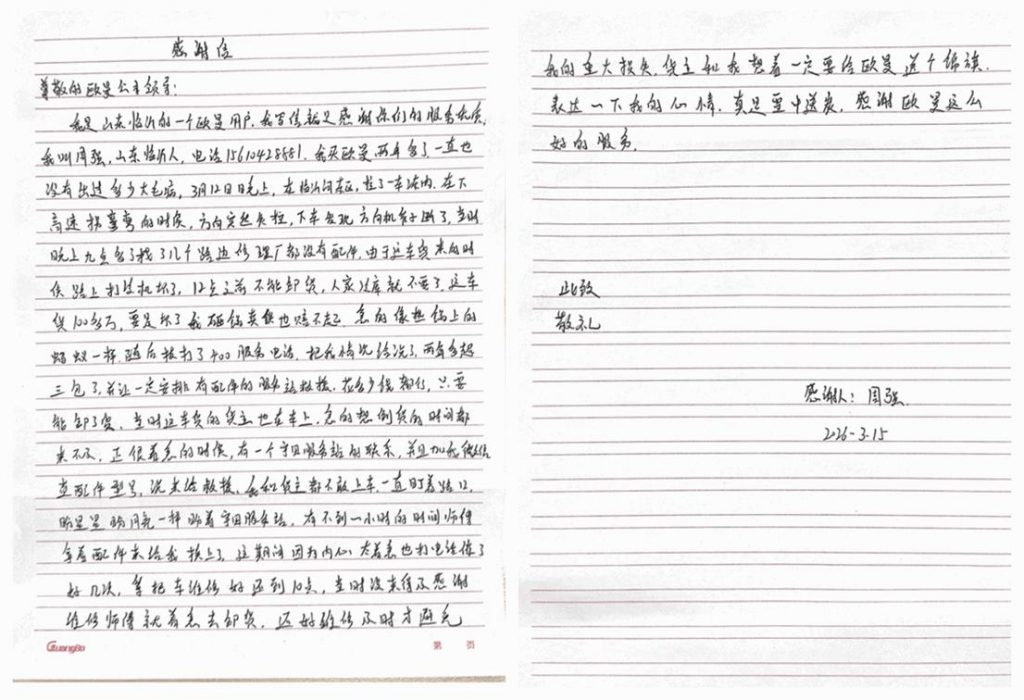 感谢信
尊敬的欧曼公司领导:
我是山东临沂的一个欧曼用户,我写信就是感谢你们的服务优质,
我叫周强,山东临沂人,电话15610428881.我买欧曼两年多了,一直也
没有出过多少大毛病,3月12日晚上,在临沂河东区,拉了一车冻肉.在下
高速拐弯的时候,方向突然失控,下车发现方向机断了,当时
晚上九点多了找了几个路边修理厂都没有配件,由于这车货来的时
候路上打装机坏了,12点之前不能卸货,人家冷库就不要了,这车
货100多万,要是坏了我砸锅卖铁也赔不起.急的像热锅上的
蚂蚁一样.随后拨打了400服务电话.把我情况给说了,两年多超
三包了,并让一定安排有配件的服务站救援.花多少钱都行,只要
能卸了货,当时这车货的货主也在车上,急的想倒货的时间都
来不及.正很着急的时候,有一个宇田服务站的联系,并且加我微信
查配件型号,说来给救援,我和货主都不敢上车.一直盯着路口,
盼星星盼月亮一样盼着宇田服务站,有不到一小时的时间师傅
拿着配件来给我换上了,这期间因为内心太着急也打电话催了
好几次,等把车维修好还不到10点,当时没来得及感谢
维修师傅就着急去卸货,还好维修及时才避免
GuangBo
第 页
我的重大损失,货主和我想着一定要给欧曼送个锦旗.
表达一下我的心情.真是雪中送炭.感谢欧曼这么
好的服务.
此致
敬礼
感谢人:周强
2026-3.15